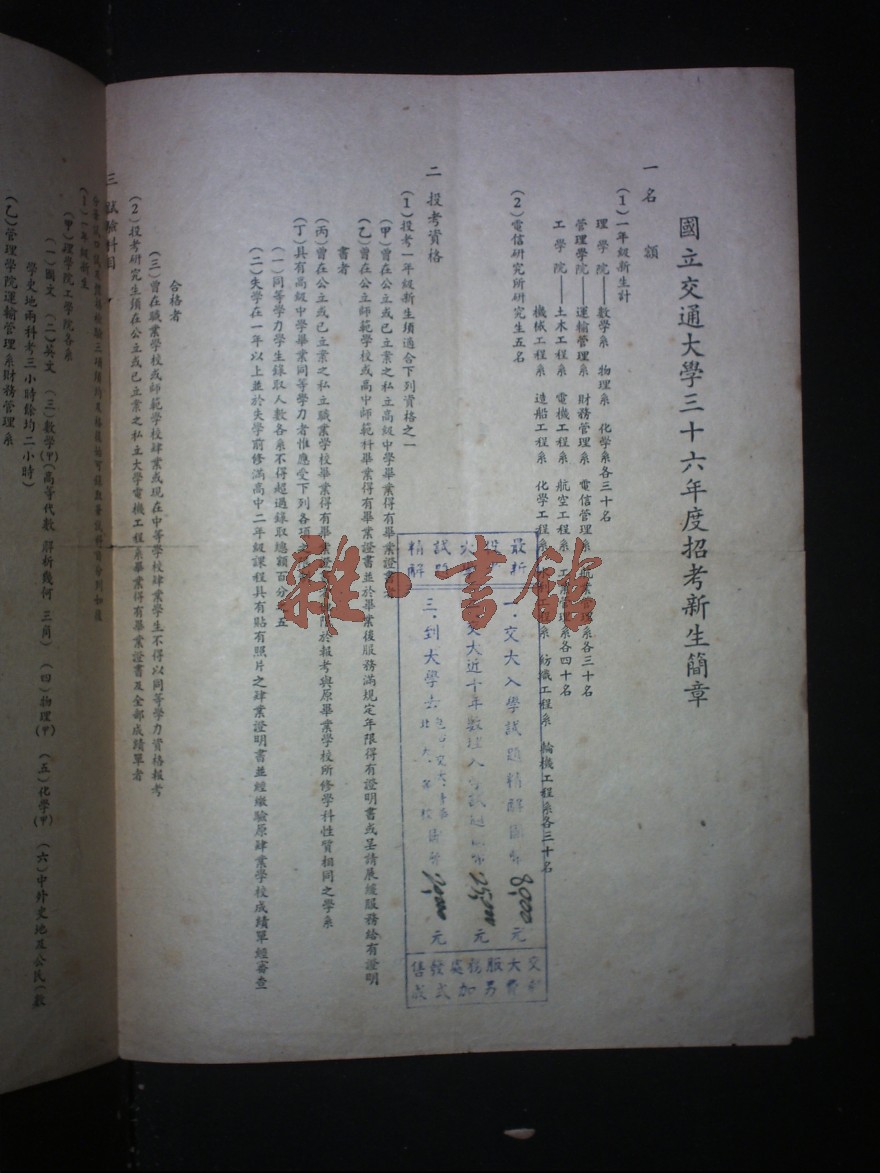 國立交通大學三十六年度招考新生簡章
一 名 額
(1)一年級新生計
理 學 院——數學系 物理系 化學系各三十名
管理學院——運輸管理系 財務管理系 電信管理系 系各三十名
工 學 院——土木工程系 電機工程系 航空工程系 工業管理系各四十名
機械工程系 造船工程系 化學工程系 系 紡織工程系 輪機工程系各三十名
(2)電信研究所研究生五名
二 投考資格
(1)投考一年級新生須適合下列資格之一
(甲)曾在公立或已立案之私立高級中學畢業得有畢業證書
(乙)曾在公立師範學校或高中師範科畢業得有畢業證書並於畢業後服務滿規定年限得有證明書或呈請展緩服務給有證明
書者
(丙)曾在公立或已立案之私立職業學校畢業得有畢業證書 限於報考與原畢業學校所修學科性質相同之學系
(丁)具有高級中學畢業同等學力者惟應受下列各項
(一)同等學力學生錄取人數各系不得超過錄取總額百分之五
(二)失學在一年以上並於失學前修滿高中二年級課程具有貼有照片之肄業證明書並經繳驗原肄業學校成績單經審查
合格者
(三)曾在職業學校或師範學校肄業或現在中等學校肄業學生不得以同等學力資格報考
(2)投考研究生須在公立或已立案之私立大學電機工程系畢業得有畢業證書及全部成績單者
三 試驗科目
(1)一年級新生
(甲)理學院工學院各系
(一)國文 (二)英文 (三)數學(甲)(高等代數 解析幾何 三角) (四)物理(甲) (五)化學(甲) (六)中外史地及公民(數
學史地兩科考三小時餘均二小時)
(乙)管理學院運輸管理系財務管理系
最新
試題
精解
一.交大入學試題精解 8,000元
交大近十年數 入學試題 25,000元
三.到大學去 元
交大
服
處
發
售
雜·書館